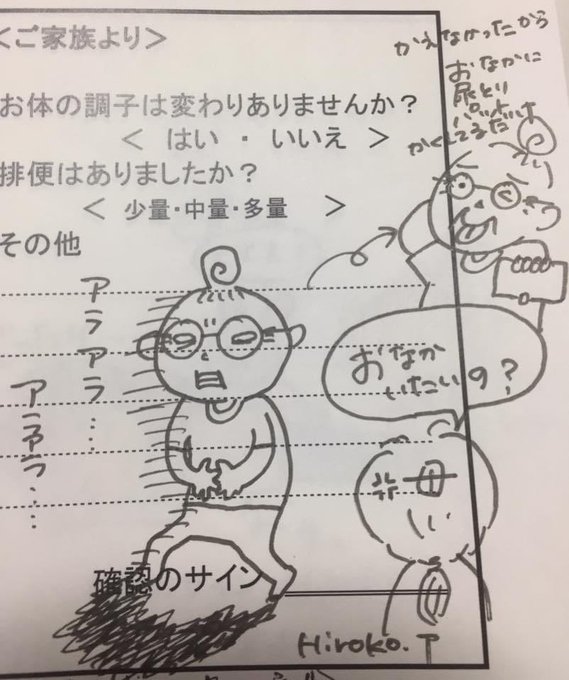 <ご家族より>
お体の調子は変わりありませんか?
< はい ・ いいえ >
排便はありましたか?
< 少量・中量・多量 >
その他
かえなかったから
おなかに
尿とり
パット
かくしてるだけ
アラ
アラ…
アラアラ……
おなか
いたいの?
確認のサイン
Hiroko.T